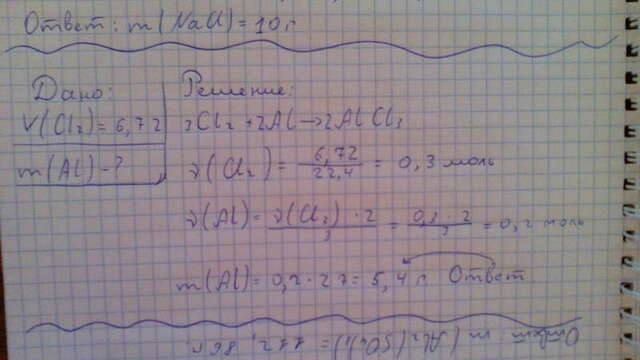 Ответ: m(NaCl) = 10 г
Дано:
V(Cl₂) = 6,72
m(Al) - ?
Решение:
3Cl₂ + 2Al → 2AlCl₃
ν(Cl₂) = 6,72 / 22,4 = 0,3 моль
ν(Al) = ν(Cl₂) · 2 / 3 = 0,3 · 2 / 3 = 0,2 моль
m(Al) = 0,2 · 27 = 5,4 г. Ответ.
Ответ: m(Al₂(SO₄)₃) =